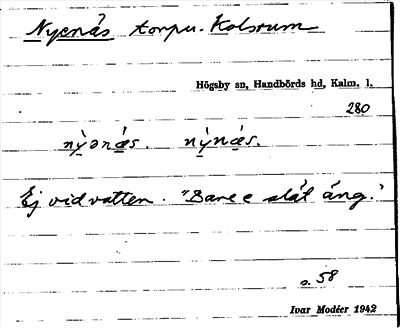 Nyenäs torpu. Kolsrum
Högsby sn, Handbörds hd, Kalm. l.
280
nỳənǽs. nỳnǽs.
Ej vid vatten. "Bare e slät äng."
s. 58
Ivar Modéer 1942